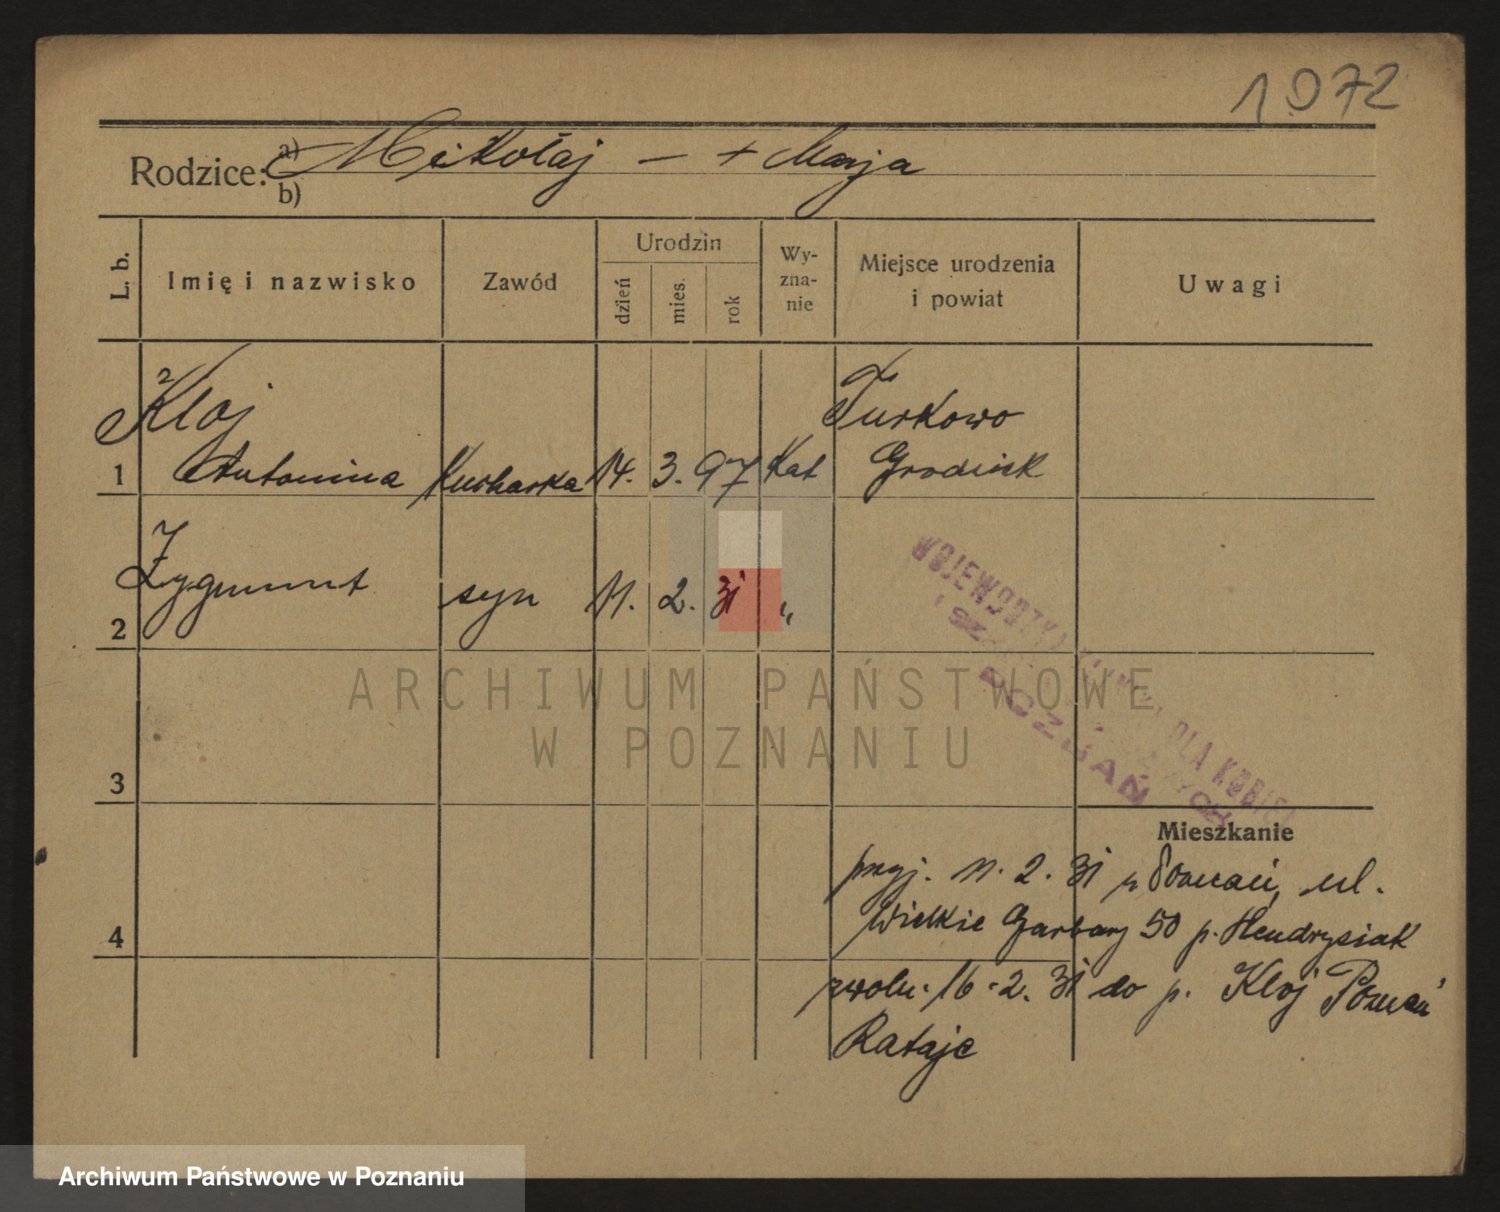 1972
Rodzice: a) Mikołaj — + Marja
b)
L. b.
Imię i nazwisko
Zawód
Urodzin
dzień
mies.
rok
Wy-
zna-
nie
Miejsce urodzenia
i powiat
Uwagi
Kloj
Turkowo
1 Antonina Kucharka 14. 3. 97 Kat Grodzisk
2 Zygmunt syn 11. 2. 31 "
WOJEWÓDZKA DLA KOBIET
POZNAŃ
ARCHIWUM PAŃSTWOWE
W POZNANIU
3
Mieszkanie
przyj. 11. 2. 31 z Poznań, ul.
4
Wielkie Garbary 50 p. Hendrysiak
zwoln. 16-2. 31 do p. Kloj Poznań
Rataje
Archiwum Państwowe w Poznaniu